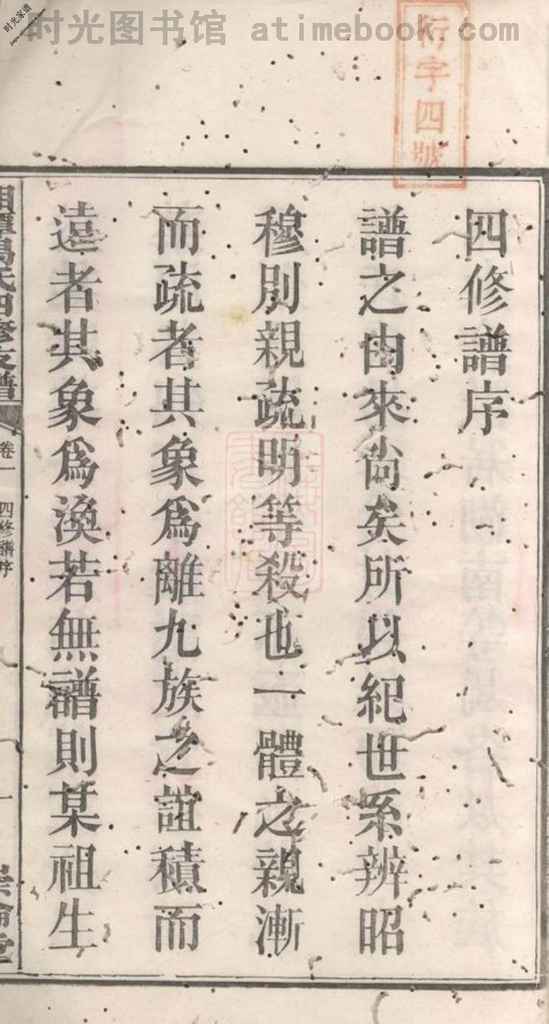 时光图书馆 atimebook.com
时光家谱
衍字四號
四修譜序
譜之由來尚矣所以紀世系辨昭
穆別親疏明等殺也一體之親漸
而疏者其象爲離九族之誼積而
遠者其象爲渙若無譜則某祖生
湘潭馮氏四修支譜 卷一 四修譜序 一